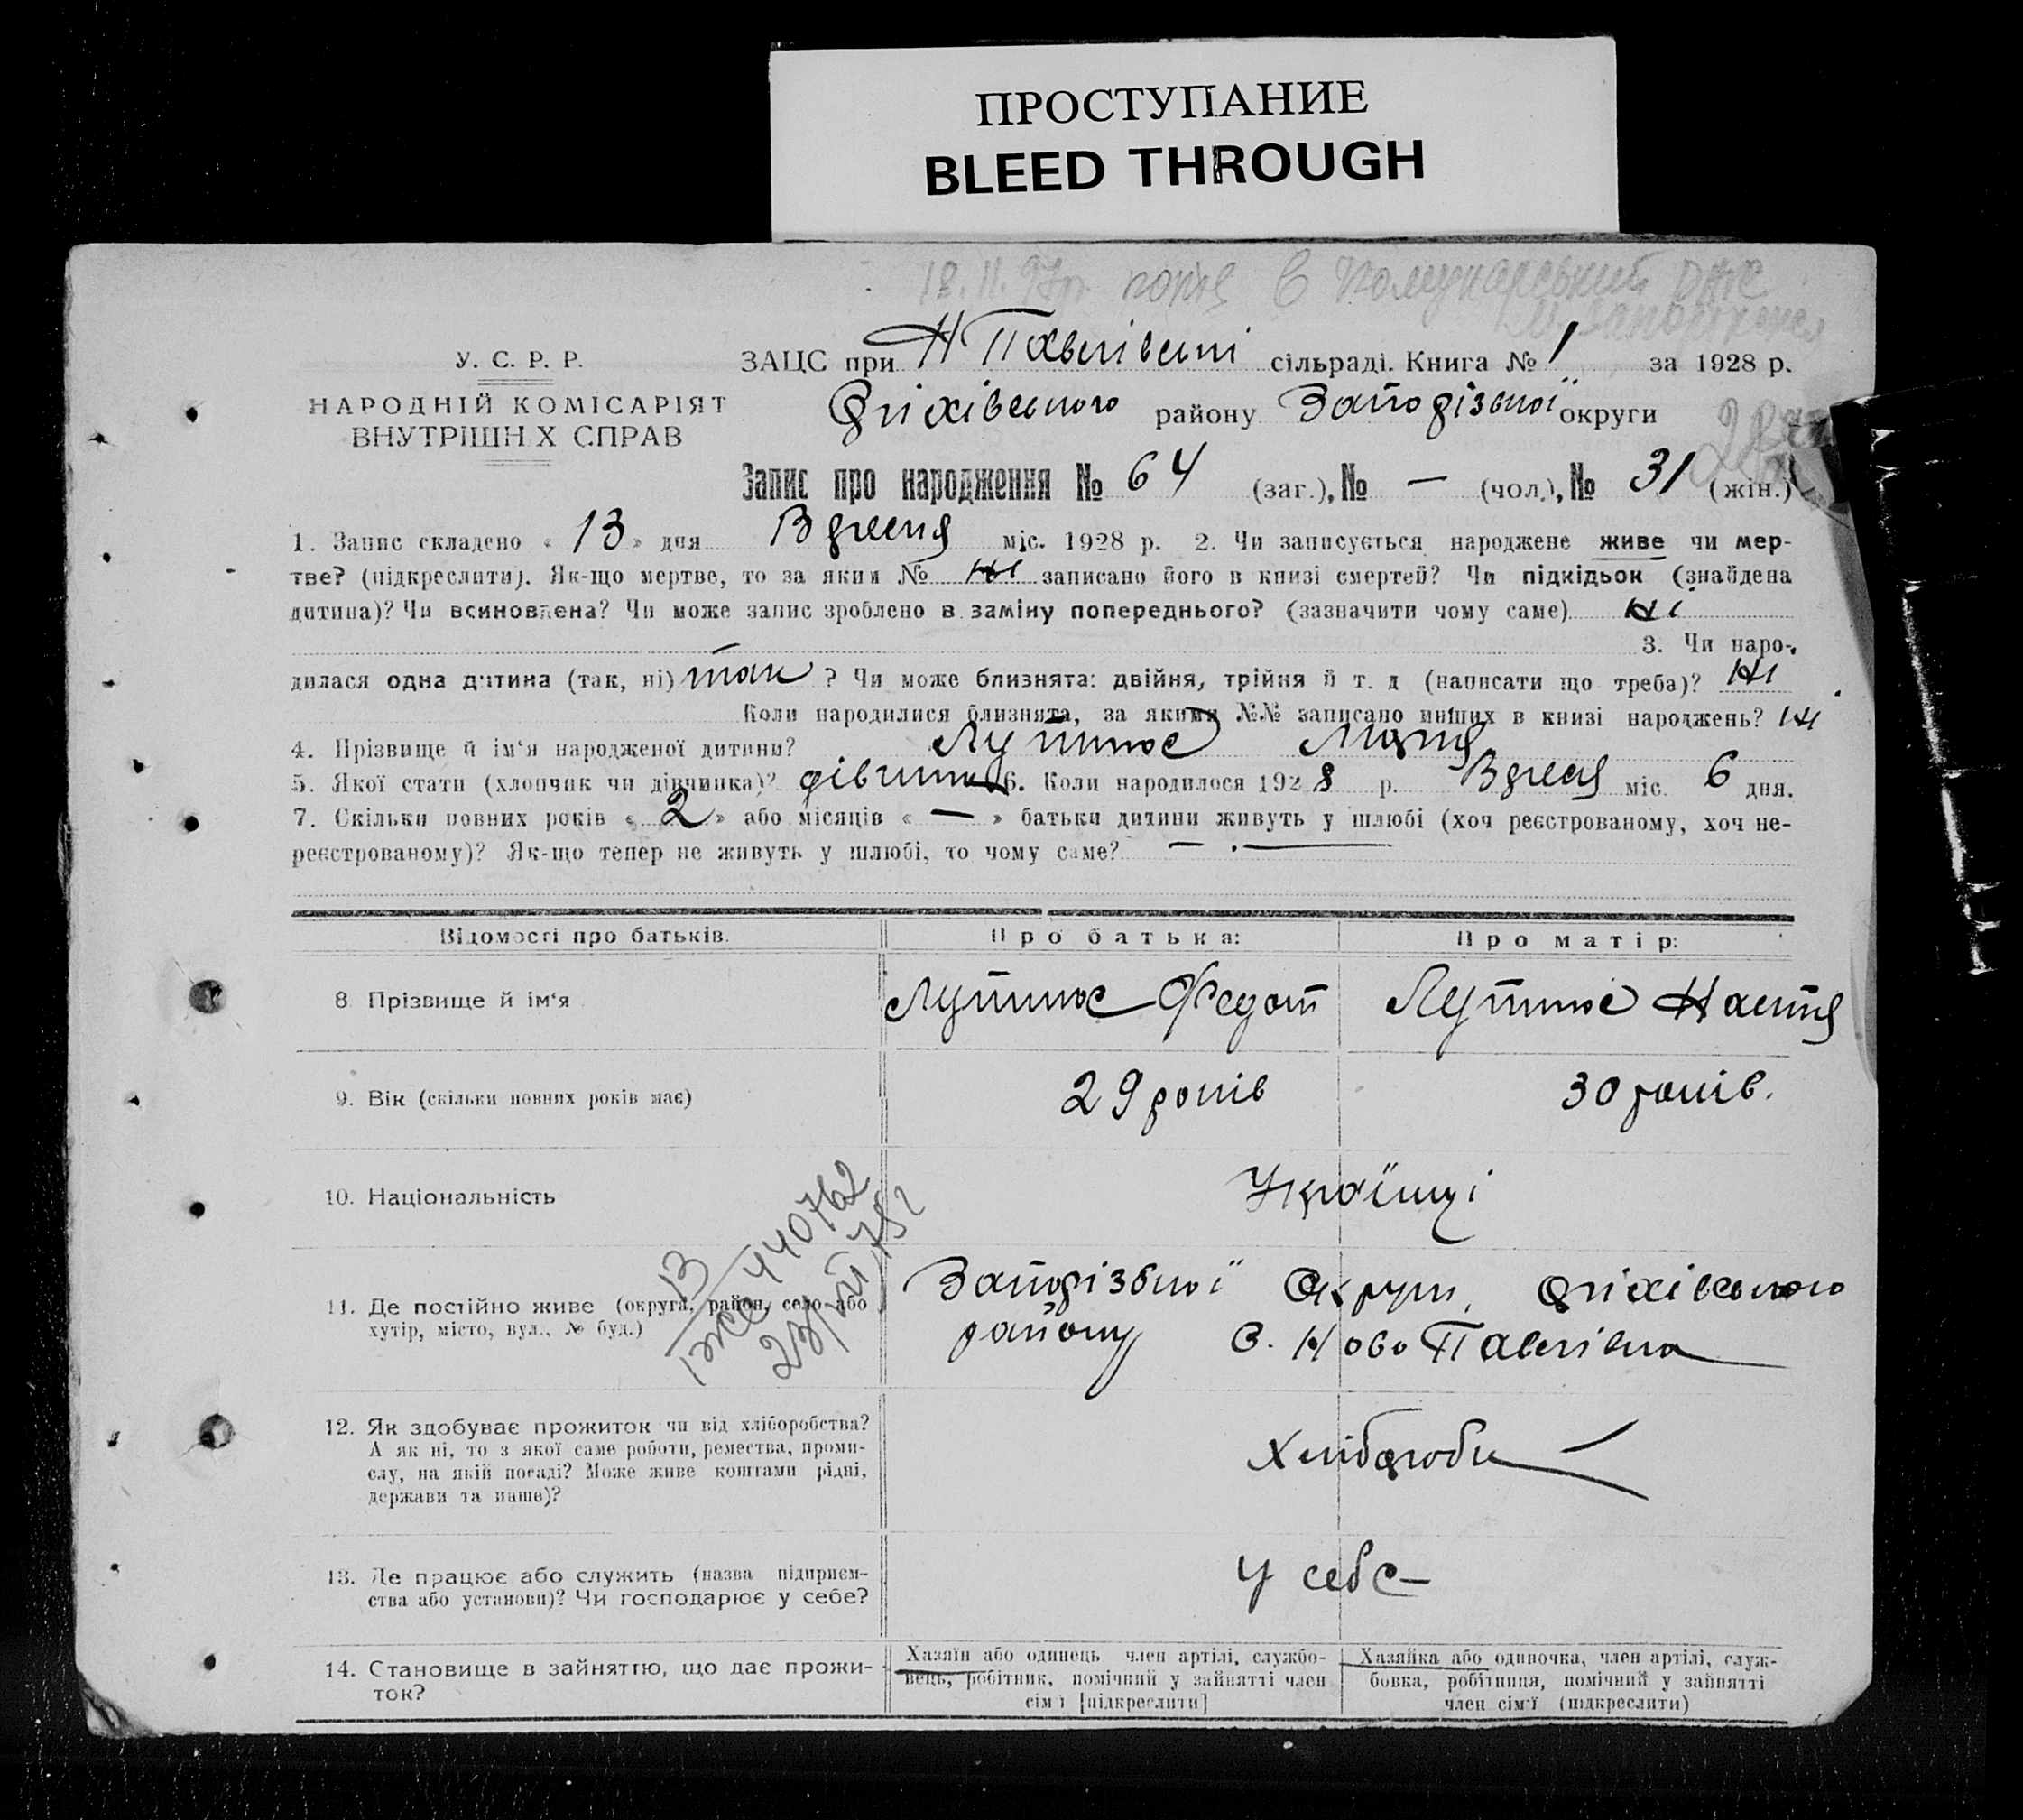 ПРОСТУПАНИЕ
BLEED THROUGH
У. С. Р. Р.
НАРОДНІЙ КОМІСАРІЯТ
ВНУТРІШН Х СПРАВ
ЗАЦС при Н Павлівські сільраді. Книга № 1 за 1928 р.
Оріхівського району Запорізької округи
Запис про народження № 64 (заг.), № — (чол.), № 31 (жін.)
1. Запис складено « 13 » дня Вресня міс. 1928 р. 2. Чи записується народжене живе чи мер-
тве? (підкреслити). Як-що мертве, то за яким № ні записано його в книзі смертей? Чи підкідьок (знайдена
дитина)? Чи всиновлена? Чи може запис зроблено в заміну попереднього? (зазначити чому саме) ні
3. Чи наро-
дилася одна дитина (так, ні) так ? Чи може близнята: двійня, трійня й т. д (написати що треба)? ні
Коли народилися близнята, за якими №№ записано инших в книзі народжень? ні
4. Прізвище й ім'я народженої дитини? Лутинос Марія
5. Якої стати (хлопчик чи дівчинка)? дівчинка 6. Коли народилося 1928 р. Вресня міс. 6 дня.
7. Скільки повних років « 2 » або місяців « — » батьки дитини живуть у шлюбі (хоч реєстрованому, хоч не-
реєстрованому)? Як-що тепер не живуть у шлюбі, то чому саме? —
Відомості про батьків. Про батька: Про матір:
8. Прізвище й ім'я Лутинос Федот Лутинос Настя
9. Вік (скільки повних років має) 29 років 30 років.
10. Національність Українці
11. Де постійно живе (округа, район, село або
хутір, місто, вул., № буд.)
Запорізької Округи, Оріхівського
району С. Ново Павлівка
12. Як здобуває прожиток чи від хліборобства?
А як ні, то з якої саме роботи, ремества, проми-
слу, на якій посаді? Може живе коштами рідні,
держави та инше)?
Хлібороби
13. Де працює або служить (назва підприєм-
ства або установи)? Чи господарює у себе?
У себе
14. Становище в зайняттю, що дає прожи-
ток?
Хазяїн або одинець член артілі, службо-
вець, робітник, помічний у зайнятті член
сім'ї [підкреслити]
Хазяйка або одиночка, член артілі, служ-
бовка, робітниця, помічний у зайнятті
член сім'ї (підкреслити)